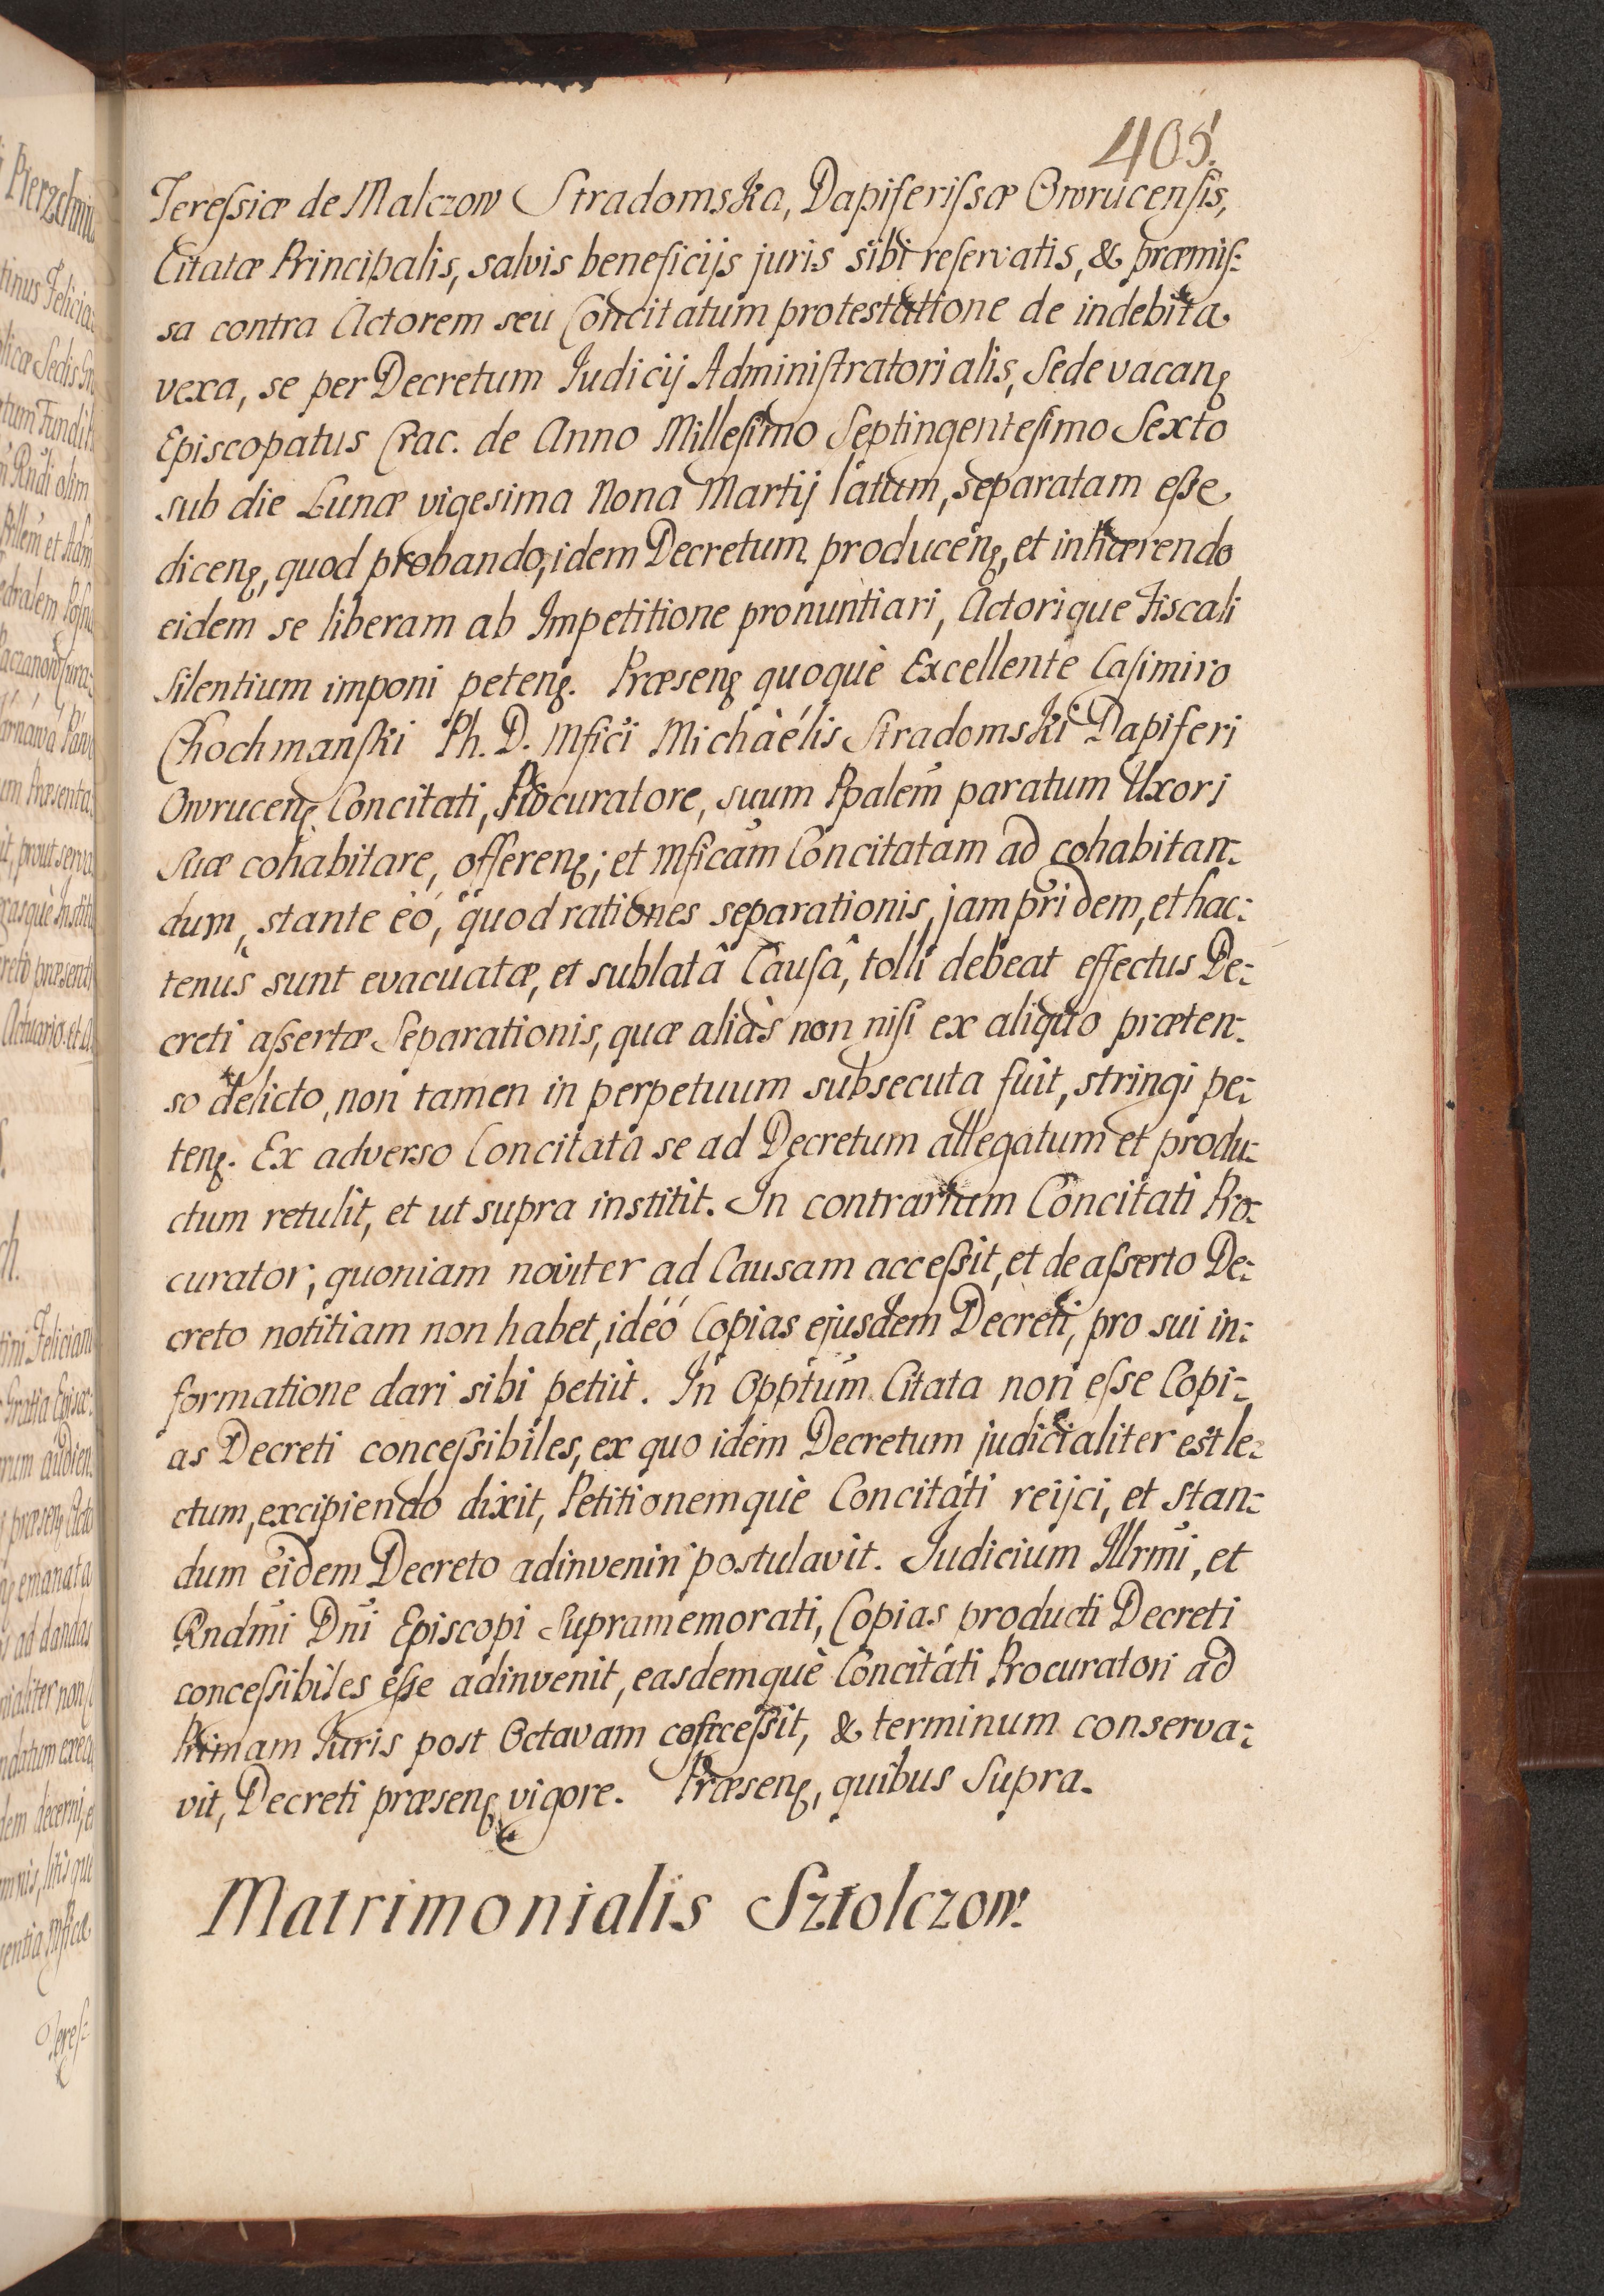 405.
Tereſsiæ de Malczow Stradomska, Dapiferiſsæ Owrucenſis,
Citatæ Principalis, salvis beneficijs juris sibi reſervatis, & præmiſ:
sa contra Actorem seu Concitatum protestatione de indebita
vexa, se per Decretum Iudicij Adminiſtratorialis, Sede vacanꝫ
Episcopatus Crac. de Anno Milleſimo Septingenteſimo Sexto
sub die Lunæ vigesima Nona Martij latum, separatam eſse
dicenꝫ, quod probando, idem Decretum producenꝫ, et inhærendo
eidem se liberam ab Impetitione pronuntiari, Actorique Fiscali
Silentium imponi petenꝫ. Præsenꝫ quoquè Excellente Caſimiro
Chochmanſki Ph. D. Mfici Michàélis Stradomski Dapiferi
Owrucenꝫ Concitati, Procuratore, suum Ppalem̃ paratum Uxori
Suæ cohabitare, offerenꝫ; et Mficam̃ Concitatam ad cohabitan:
dum, stante eó, quod rationes separationis, jam pridem, et hac:
tenus sunt evacuatæ, et sublatâ Cauſâ, tolli debeat effectus De:
creti aſsertæ Separationis, quæ aliàs non niſi ex aliquo præten:
so delicto, non tamen in perpetuum subsecuta fuit, stringi pe:
tenꝫ. Ex adverso Concitata se ad Decretum allegatum et produ:
ctum retulit, et ut supra institit. In contrarium Concitati Pro:
curator, quoniam noviter ad Causam acceſsit, et de aſserto De:
creto notitiam non habet, idéó Copias ejusdem Decreti, pro sui in:
formatione dari sibi petiit. In Opptum̃ Citata non eſse Copi:
as Decreti conceſsibiles, ex quo idem Decretum judicialiter est le:
ctum, excipiendo dixit, Petitionemquè Concitáti reijci, et Stan:
dum eidem Decreto adinveniri postulavit. Iudicium Illrmi, et
Rndmi Dni Episcopi Supramemorati, Copias producti Decreti
conceſsibiles eſse adinvenit, easdemquè Concitáti Procuratori ad
Primam Iuris post Octavam conceſsit, & terminum conserva:
vit, Decreti præsenꝫ vigore. Præsenꝫ, quibus Supra.
Matrimonialis Sztolczow.